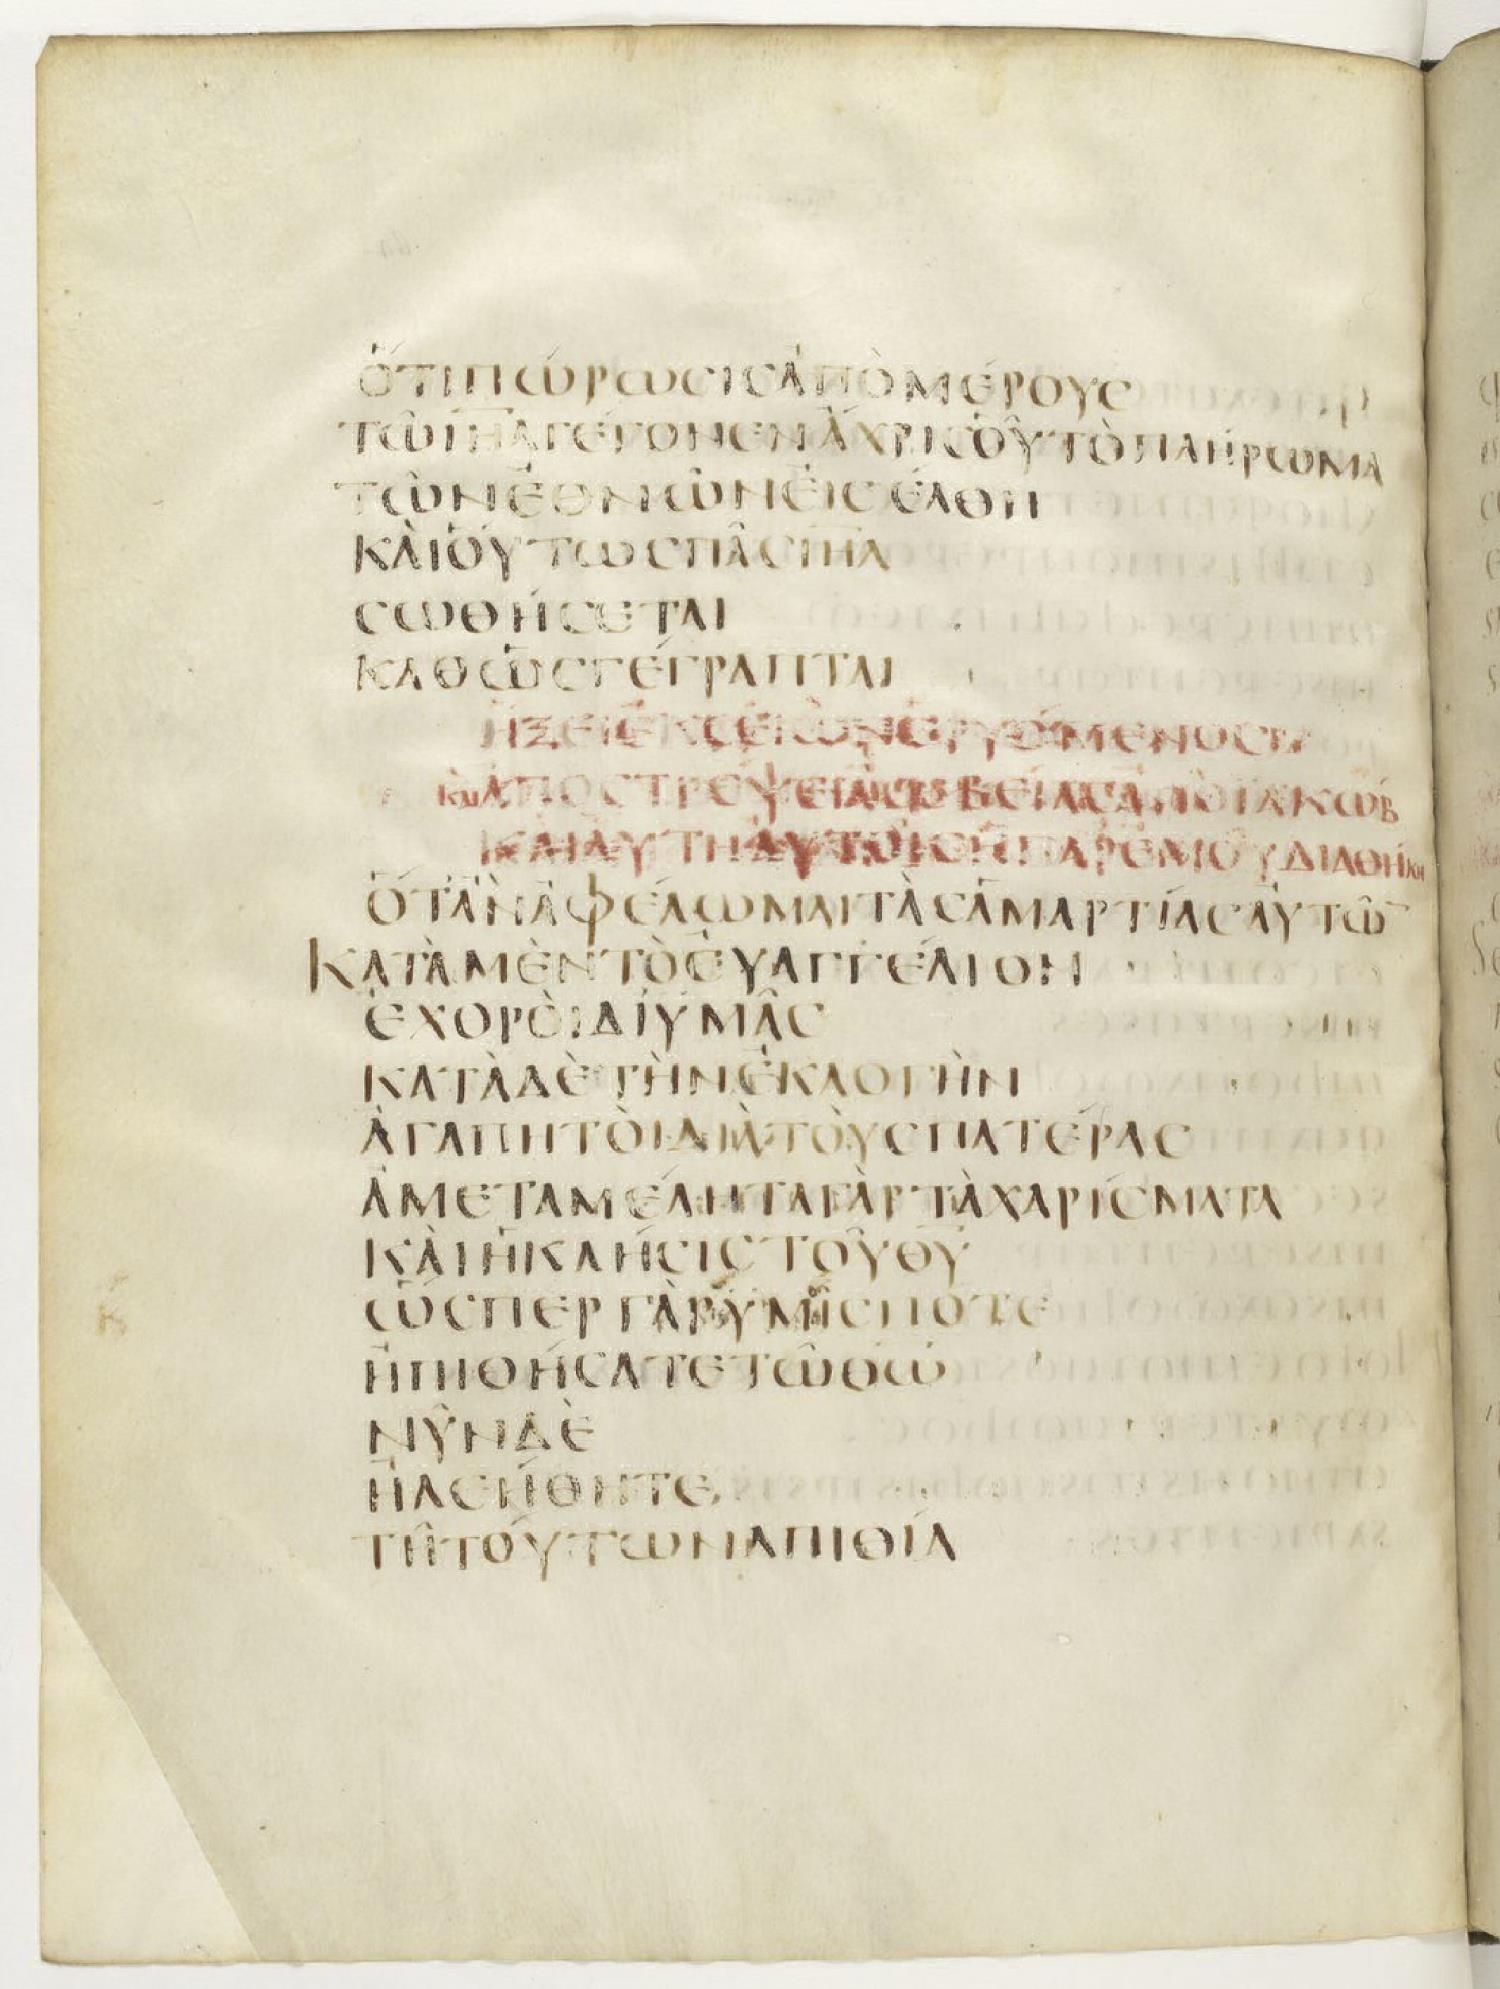 ὍΤΙΠΏΡΩϹΙϹἈΠῸΜΈΡΟΥϹ
ΤΩ͂ΙΗ̅Λ̅ΓΈΓΟΝΕΝἌΧΡΙϹΟΥ͂ΤῸΠΛΉΡΩΜΑ
ΤΩ͂ΝἘΘΝΩ͂ΝἘΙϹΈΛΘΗ
ΚᾺΙΟὝΤΩϹΠΑ͂ϹΙΗ̅Λ̅
ϹΩΘΉϹΕΤΑΙ
ΚΑΘῺϹΓΈΓΡΑΠΤΑΙ
ἭΞΕΙἘΚϹΕΙῺΝὉΡΥΌΜΕΝΟϹ
ΚΑΙἈΠΟϹΤΡΈΨΕΙἈϹΕΒΕΊΑϹἈΠῸΙΑΚΏΒ
ΚΑΙΑΥΤΗΑΥΤΟΙϹΗΠΑΡΕΜΟΥΔΙΑΘΉΚΗ
ὍΤᾺΝἈΦΈΛΩΜΑΙΤᾺϹἉΜΑΡΤΊΑϹἈΥΤΩ͂̅
ΚΑΤᾺΜῈΝΤῸἘΥΑΓΓΈΛΙΟΝ
ἘΧΟΡῸΙΔΙΥΜΑ͂Ϲ
ΚΑΤᾺΔῈΤῊΝἘΚΛΟΓῊΝ
ἈΓΑΠΗΤῸΙΔΙᾺΤῸΥϹΠΑΤΈΡΑϹ
ἈΜΕΤΑΜΈΛΗΤΑΓᾺΡΤᾺΧΑΡΊϹΜΑΤΑ
ΚᾺΙἩΚΛΗ͂ϹΙϹΤΟΥ͂Θ̅Υ̅
ὭϹΠΕΡΓᾺΡὙΜΕΙ͂ϹΠΟΤΕ
ἨΠΙΘΉϹΑΤΕΤΩ͂Θ̅Ω̅
ΝΥ͂ΝΔῈ
ἨΛΕΉΘΗΤΕ
ΤΗ͂ΤΟΎΤΩΝΑΠΙΘΊΑ